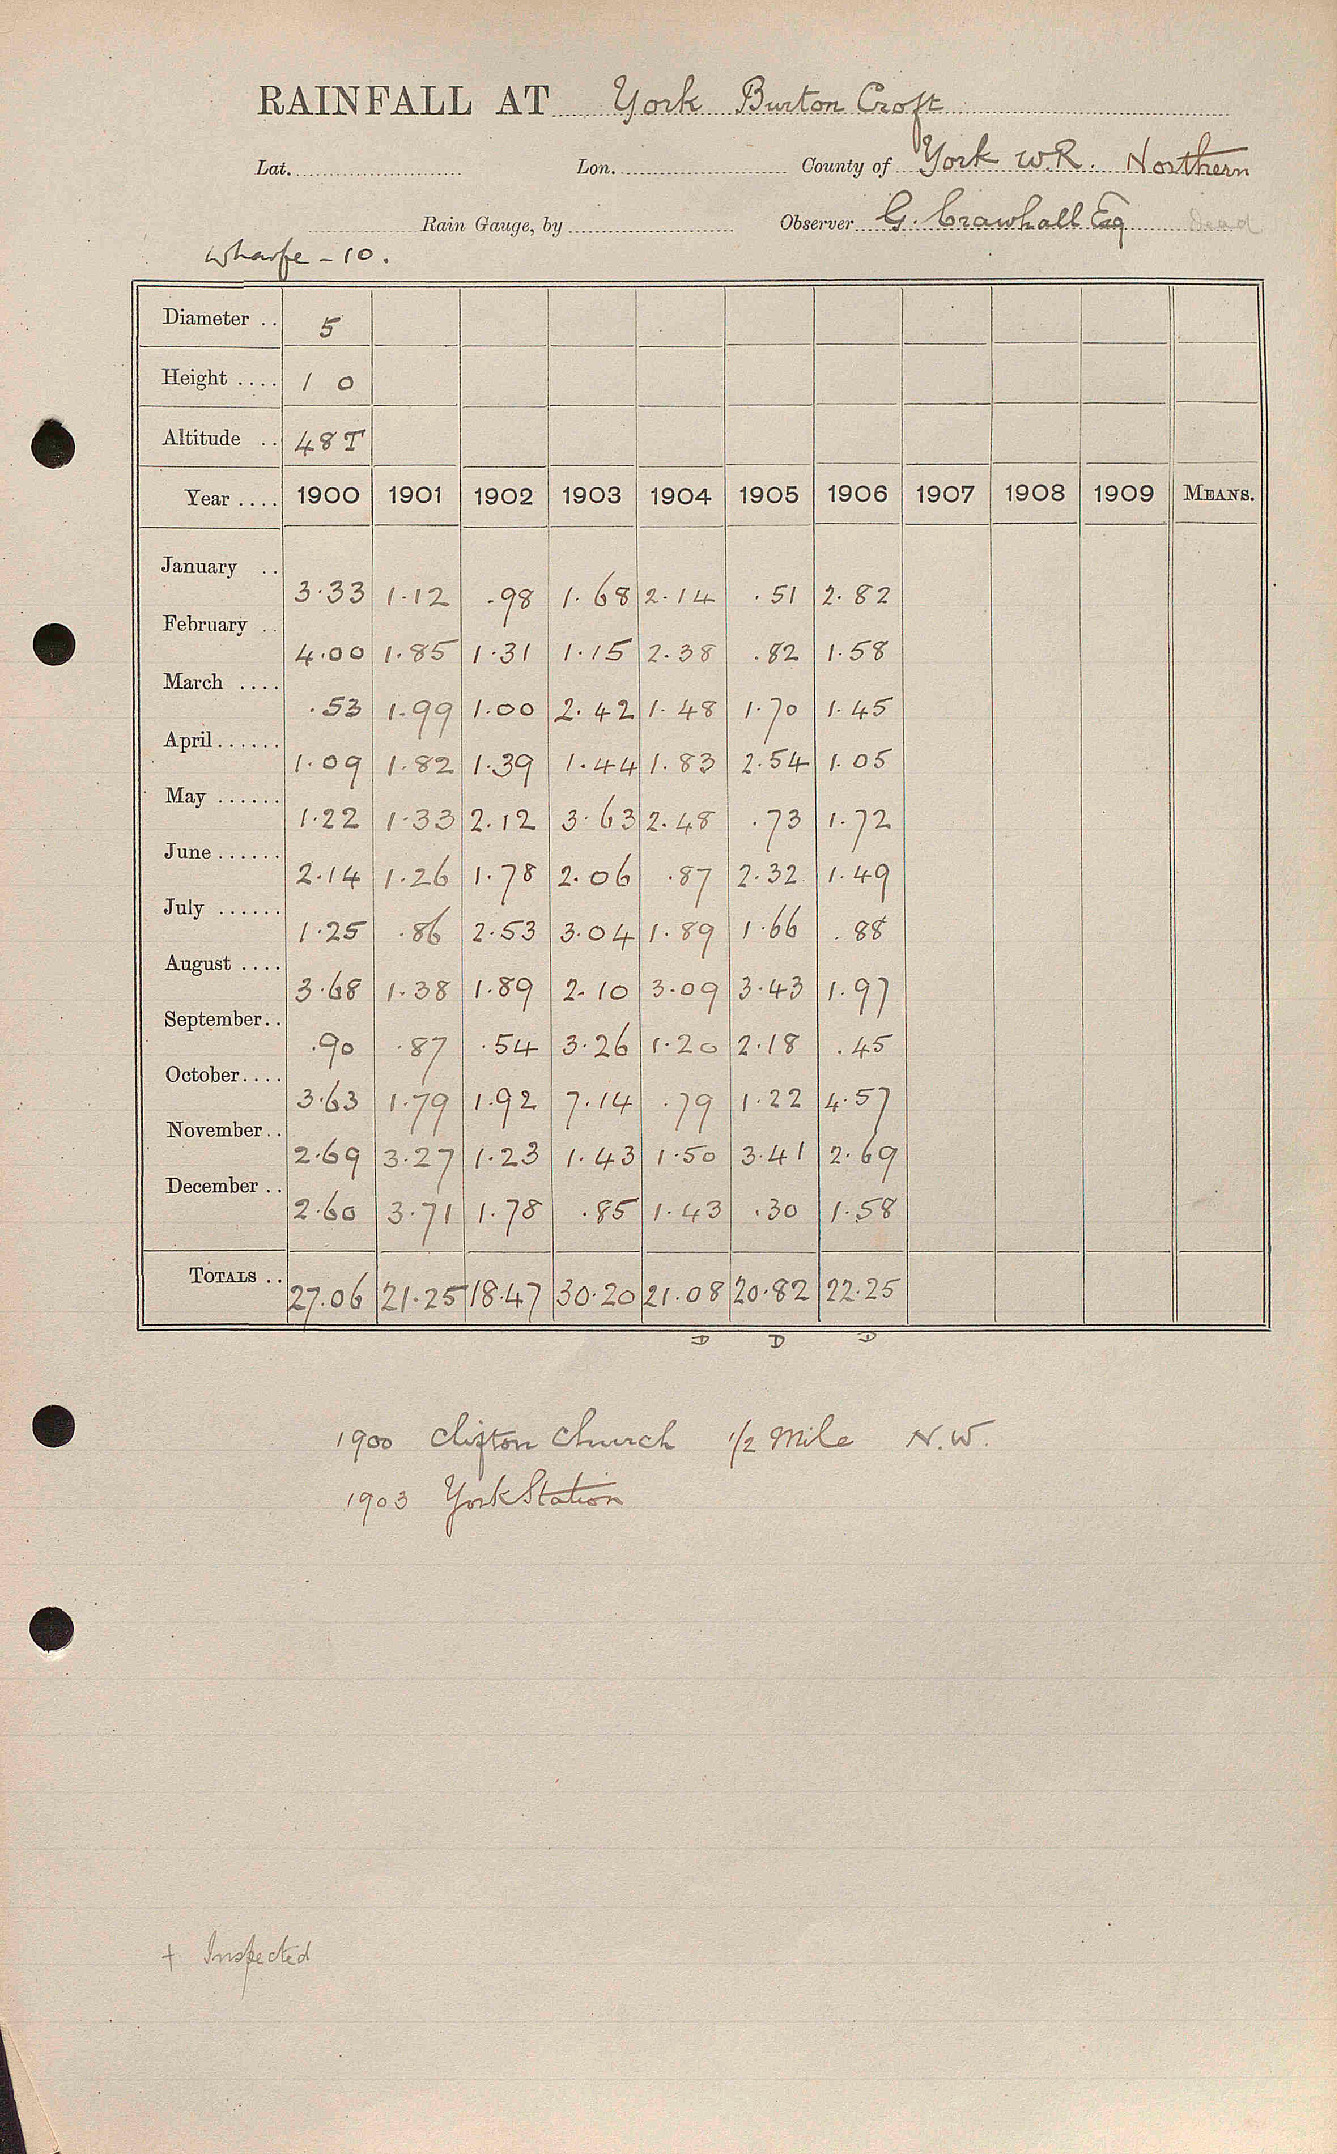 RAINFALL AT York Burton Croft
Lat. Lon. County of York W.R. Northern
Rain Gauge, by Observer G. Crawhall Esq Dead
Wharfe - 10.
Diameter .. 5
Height .... 1 0
Altitude .. 48T
Year .... 1900 1901 1902 1903 1904 1905 1906 1907 1908 1909 MEANS.
January .. 3.33 1.12 .98 1.68 2.14 .51 2.82
February .. 4.00 1.85 1.31 1.15 2.38 .82 1.58
March .... .53 1.99 1.00 2.42 1.48 1.70 1.45
April...... 1.09 1.82 1.39 1.44 1.83 2.54 1.05
May ...... 1.22 1.33 2.12 3.63 2.48 .73 1.72
June...... 2.14 1.26 1.78 2.06 .87 2.32 1.49
July ...... 1.25 .86 2.53 3.04 1.89 1.66 .88
August .... 3.68 1.38 1.89 2.10 3.09 3.43 1.97
September.. .90 .87 .54 3.26 1.20 2.18 .45
October.... 3.63 1.79 1.92 7.14 .79 1.22 4.57
November.. 2.69 3.27 1.23 1.43 1.50 3.41 2.69
December .. 2.60 3.71 1.78 .85 1.43 .30 1.58
TOTALS .. 27.06 21.25 18.47 30.20 21.08 20.82 22.25
D D D
1900 Clifton Church 1/2 Mile N.W.
1903 York Station
+ Inspected